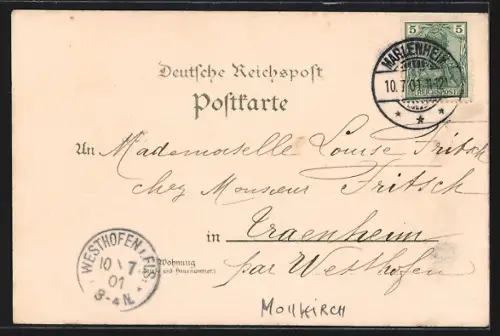 5
REICHSPOST
MARLENHEIM
10.7.01.11-12
Deutsche Reichspost
Postkarte
An Mademoiselle Louise Fritsch
chez Monsieur Fritsch
in Traenheim
Wohnung
(Straße und Hausnummer)
par Westhofen
WESTHOFEN (ELS)
10 7
01
3-4N.
MOLLKIRCH